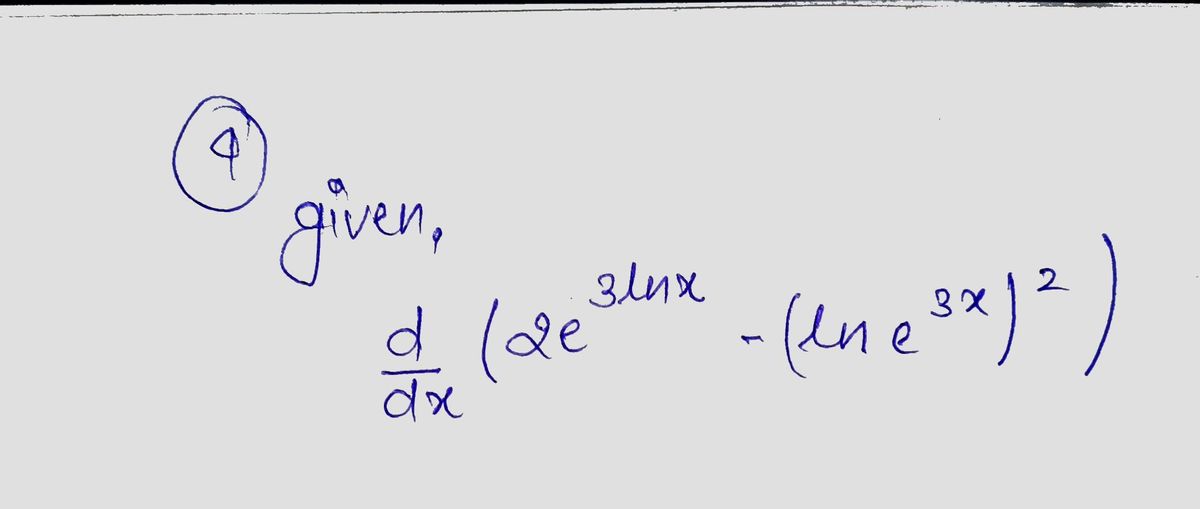 4
given,
d/dx (2e^{3lnx} - (ln e^{3x})^2)